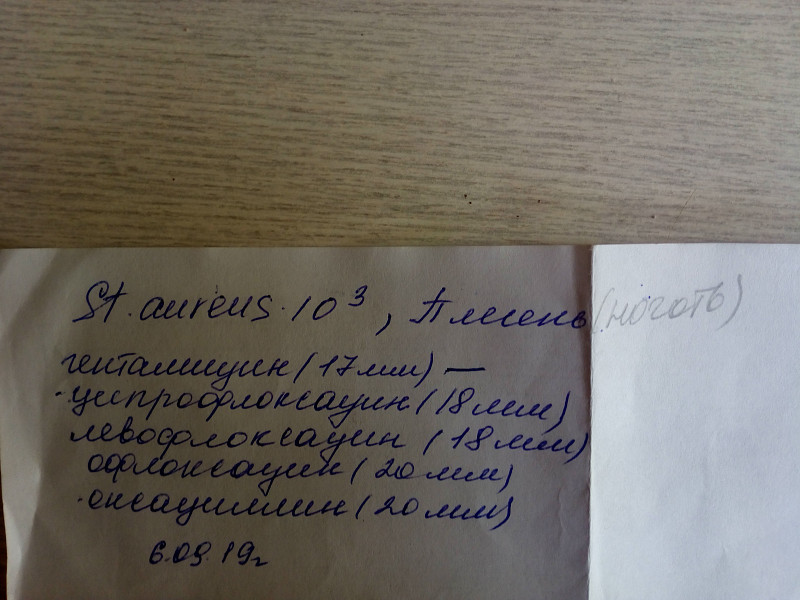 St. aureus · 10³, Плесень (ноготь)
гентамицин (17мм) —
· ципрофлоксацин (18мм)
левофлоксацин (18мм)
офлоксацин (20мм)
· оксациллин (20мм)
6.09.19г